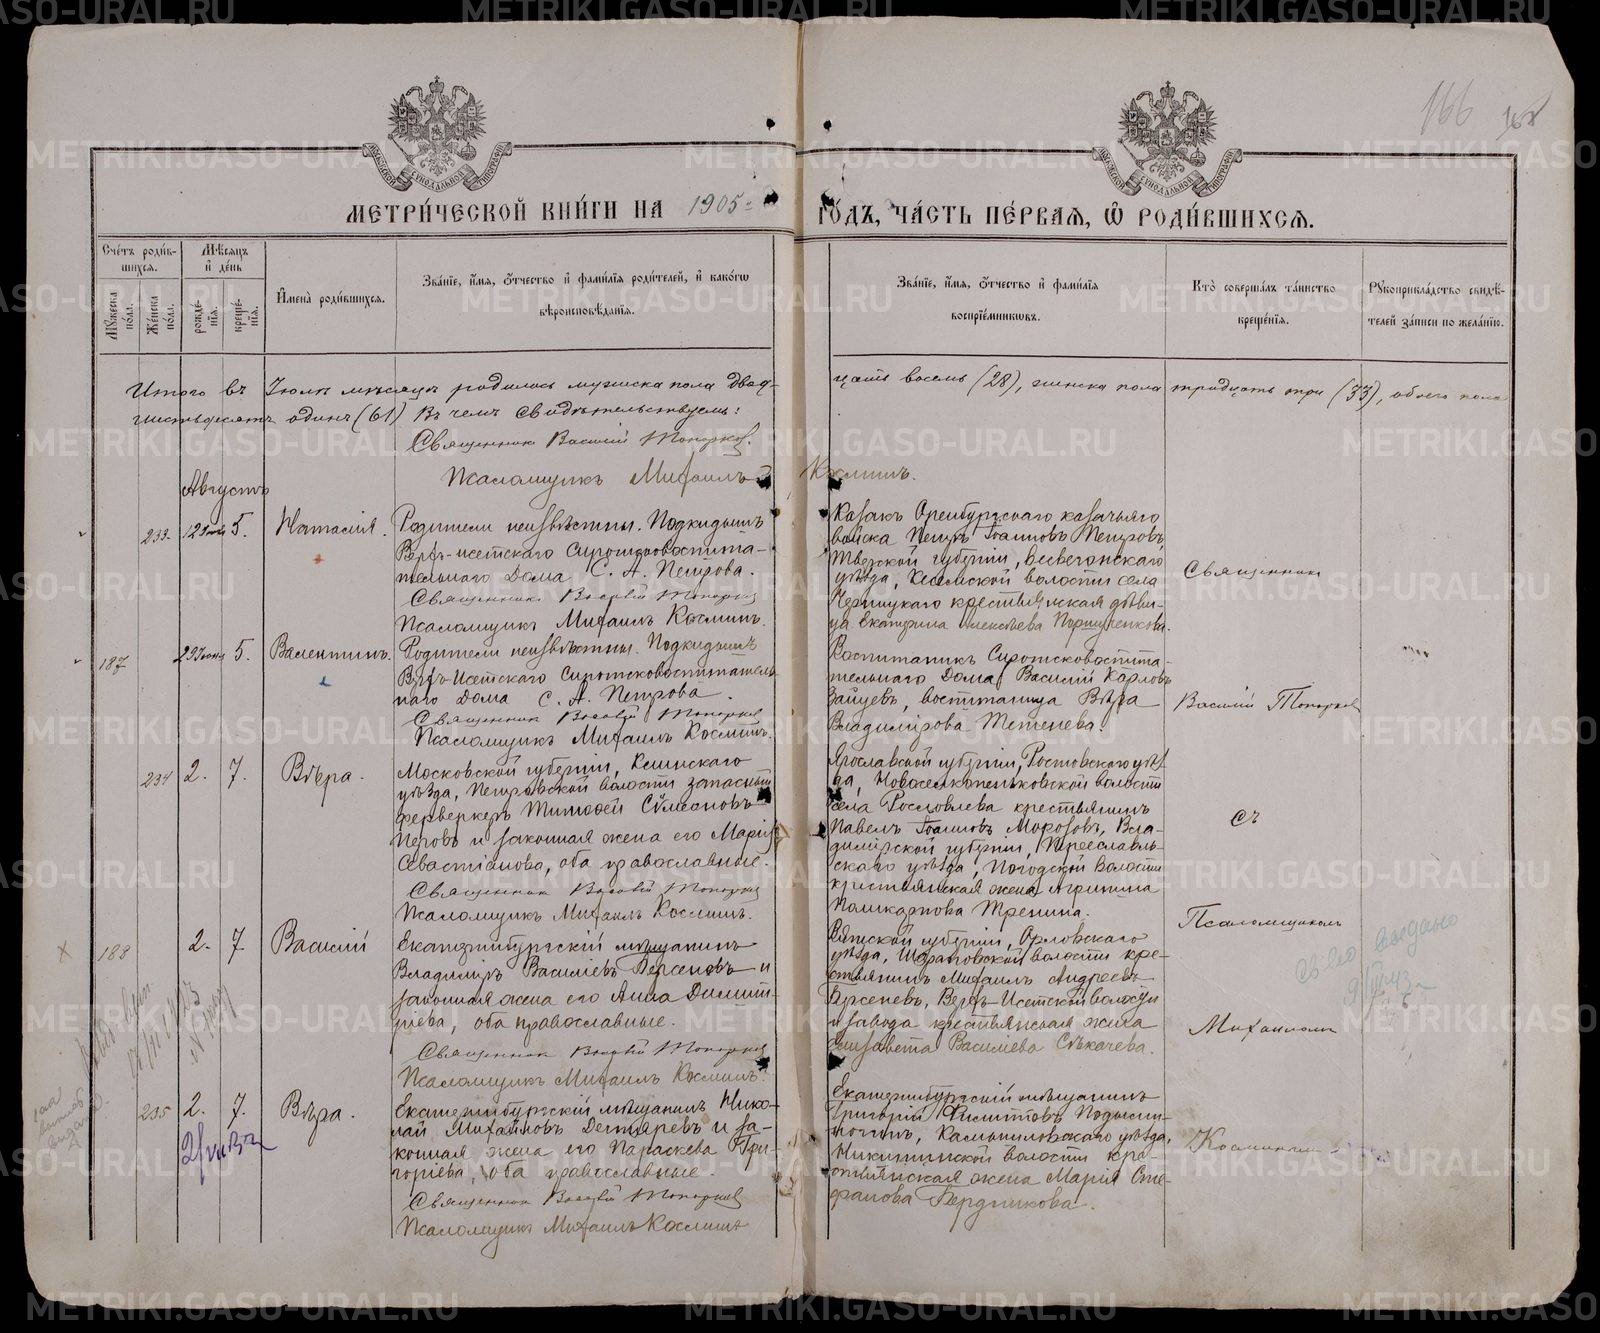 166
МЕТРИ́ЧЕСКОЙ КНИ́ГИ НА 1905 ГО́ДЪ, ЧА́СТЬ ПЕ́РВАЯ, Ѡ РОДИ́ВШИХСЯ.
Сче́тъ роди́в-
шихся.
Мѣ́сяцъ
и де́нь
Му́жеска по́ла.
Же́нска по́ла.
рожде́-
нія.
креще́-
нія.
Имена̀ роди́вшихся.
Зва́ніе, и́мя, о́тчество и фами́лія роди́телей, и како́гѡ
вѣроисповѣ́данія.
Зва́ніе, и́мя, о́тчество и фами́лія
воспріе́мниковъ.
Кто̀ соверша́лъ та́инство
креще́нія.
Рукоприкла́дство свидѣ́-
телей за́писи по жела́нію.
Итого въ Іюлѣ мѣсяцѣ родилось мужеска пола двад-
цать восемь (28), женска пола тридцать три (33), обоего пола
шестьдесятъ одинъ (61) Въ чемъ свидѣтельствуемъ:
Священникъ Василій Топорковъ.
Псаломщикъ Михаилъ Косминъ.
Августъ
233. 5. Наталія.
Родители неизвѣстны. Подкидышъ
Верхъ-Исетскаго Сиротсковоспита-
тельнаго Дома С. А. Петрова.
Священникъ Василій Топорковъ
Псаломщикъ Михаилъ Косминъ.
Казакъ Оренбургскаго казачьяго
войска Петръ Іоанновъ Петровъ
Тверской губерніи, Весьегонскаго
уѣзда, Кесемской волости села
крестьянская дѣви-
ца Екатерина Алексѣева
Священникъ
187 5. Валентинъ.
Родители неизвѣстны. Подкидышъ
Верхъ-Исетскаго Сиротсковоспитатель-
наго Дома С. А. Петрова.
Священникъ Василій Топорковъ
Псаломщикъ Михаилъ Косминъ.
Воспитанникъ Сиротсковоспита-
тельнаго Дома Василій Карловъ
Зайцевъ, воспитанница Вѣра
Владимірова Тетенева.
Василій Топорковъ
234 2. 7. Вѣра.
Московской губерніи, Клинскаго
уѣзда, Петровской волости запасный
фейерверкеръ Тимофей Сѵмеоновъ
Перовъ и законная жена его Марія
Севастіанова, оба православные.
Священникъ Василій Топорковъ
Псаломщикъ Михаилъ Косминъ.
Ярославской губерніи, Ростовскаго уѣз-
да, волости
села крестьянинъ
Павелъ Іоанновъ Морозовъ, Вла-
димірской губерніи, Переславль-
скаго уѣзда, Погодской Волости
крестьянская жена Агрипина
Поликарпова Тренина.
съ
188 2. 7. Василій
Екатеринбургскій мѣщанинъ
Владиміръ Василіевъ Берсеневъ и
законная жена его Анна Димит-
ріева, оба православные.
Священникъ Василій Топорковъ
Псаломщикъ Михаилъ Косминъ.
Вятской губерніи, Орловскаго
уѣзда, волости кре-
стьянинъ Михаилъ Андреевъ
Верхъ-Исетской волости
и завода крестьянская жена
Елизавета Василіева Сѣкачева.
Псаломщикомъ
Михаиломъ
выдано
235 2. 7. Вѣра.
Екатеринбургскій мѣщанинъ Нико-
лай Михайловъ Дегтяревъ и за-
конная жена его Параскева Гри-
горіева, оба православные.
Священникъ Василій Топорковъ
Псаломщикъ Михаилъ Косминъ
Екатеринбургскій мѣщанинъ
Григорій Филипповъ
Камышловскаго уѣзда,
Никитинской волости кре-
стьянская жена Марія Сте-
фанова Бердникова.
Косминымъ
METRIKI.GASO-URAL.RU